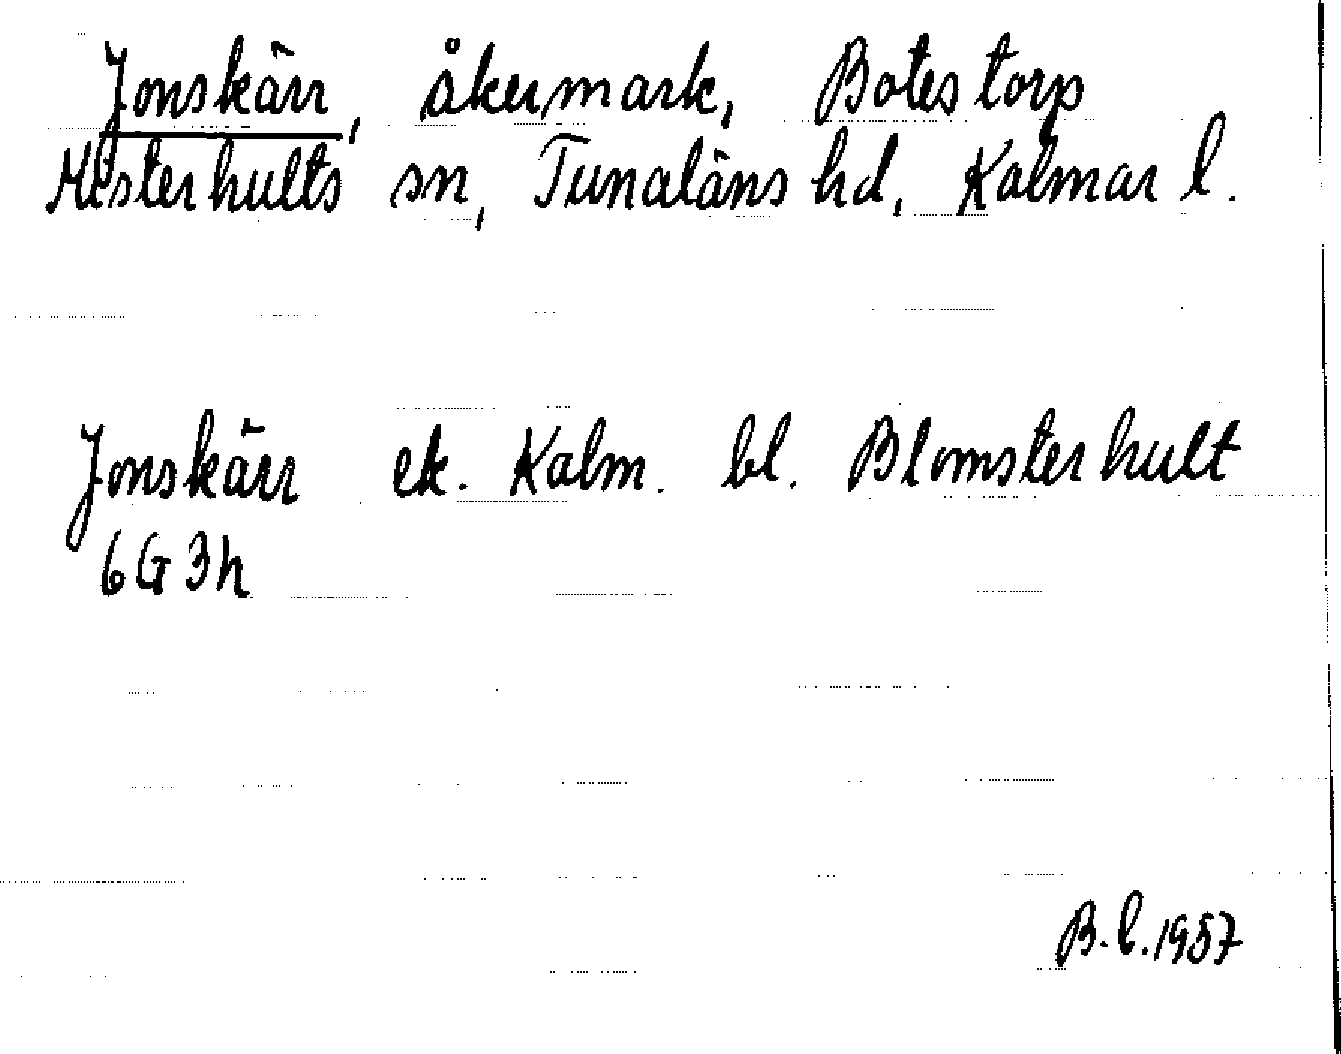 Jonskärr, åkermark, Botestorp
Misterhults sn, Tunaläns hd, Kalmar l.
Jonskärr ek. Kalm. bl. Blomsterhult
6G3h
B.l.1957